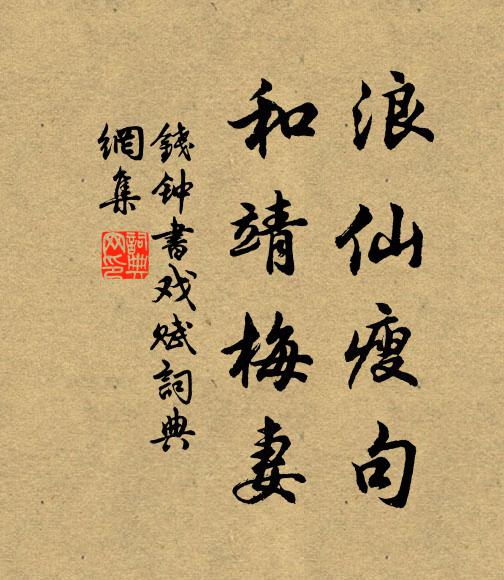 浪仙瘦句
和靖梅妻
錢钟書戏赋詞典
網集
詞典
网印